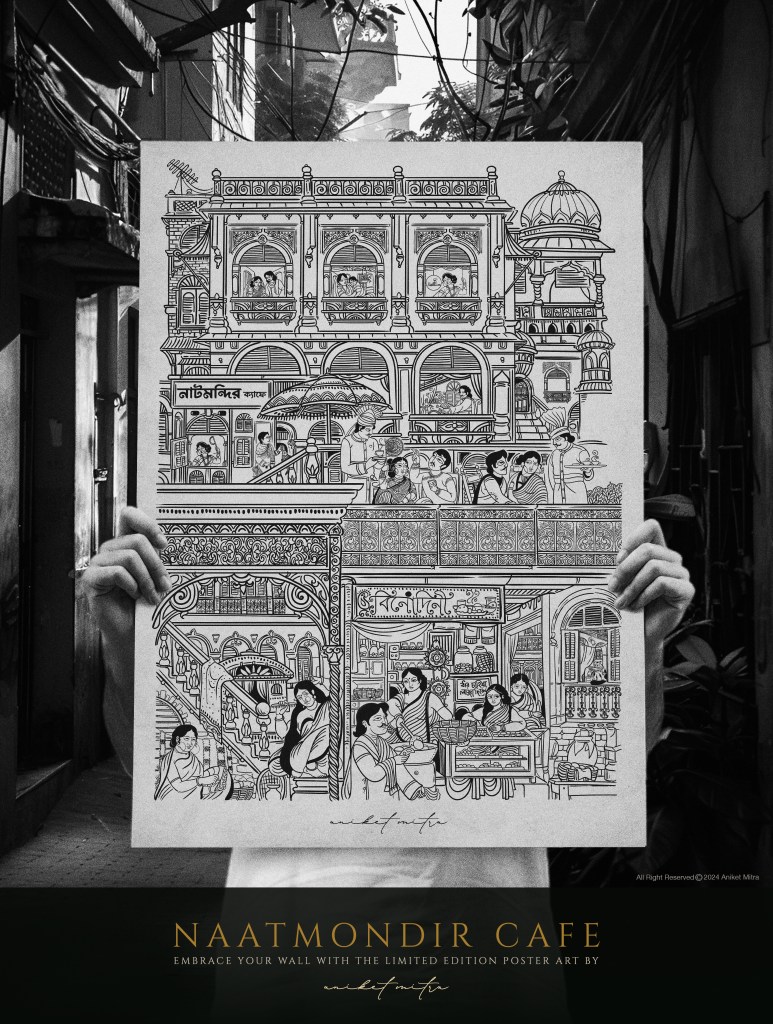 নাটমন্দির ক্যাফে
বিনোদিনী
aniket mitra
All Right Reserved © 2024 Aniket Mitra
NAATMONDIR CAFE
EMBRACE YOUR WALL WITH THE LIMITED EDITION POSTER ART BY
aniket mitra